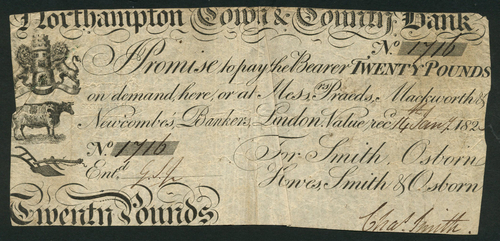 Northampton Town & County Bank
No 1716
I Promise to pay the Bearer TWENTY POUNDS
on demand, here, or at Messrs Praeds, Mackworth &
Newcombes, Bankers, London, Value recd 14 Jany 182
No 1716
Entd
For Smith, Osborn
Hwes, Smith & Osborn
Twenty Pounds
Chas Smith